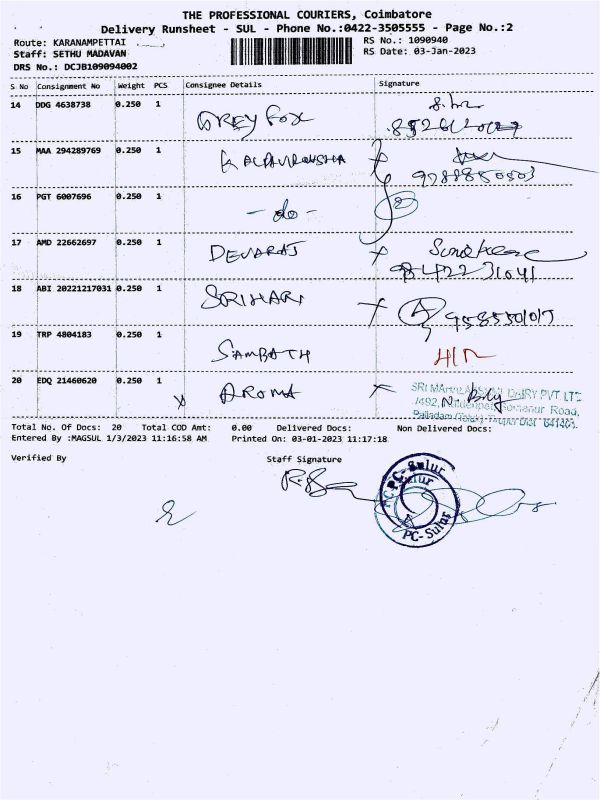 THE PROFESSIONAL COURIERS, Coimbatore
Delivery Runsheet - SUL - Phone No.:0422-3505555 - Page No.:2
Route: KARANAMPETTAI
RS No.: 1090940
Staff: SETHU MADAVAN
RS Date: 03-Jan-2023
DRS No.: DCJB109094002
S No Consignment No Weight PCS Consignee Details Signature
14 DDG 4638738 0.250 1 GREY FOX
15 MAA 294289769 0.250 1
16 PGT 6007696 0.250 1 - do -
17 AMD 22662697 0.250 1 DEVARAJ
9842231041
18 ABI 20221217031 0.250 1 SRIHARI
19 TRP 4804183 0.250 1 SAMBATH
20 EDQ 21460620 0.250 1 AROMA
DAIRY PVT. LTD
Road,
Palladam (Taluk), Tirupur Dist
Total No. Of Docs: 20 Total COD Amt: 0.00 Delivered Docs: Non Delivered Docs:
Entered By :MAGSUL 1/3/2023 11:16:58 AM Printed On: 03-01-2023 11:17:18
Verified By Staff Signature
PC-Sulur
PC-Sulur
PC-Sulur